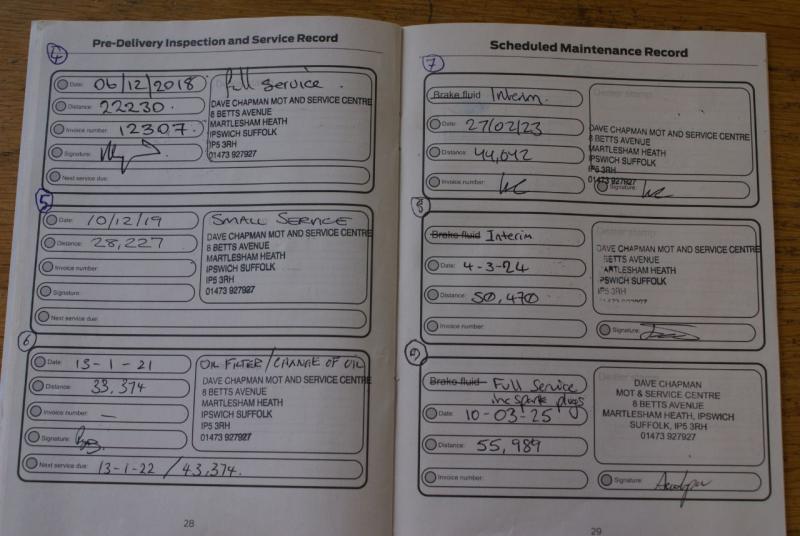 Pre-Delivery Inspection and Service Record
4
Date: 06/12/2018
Full Service.
Distance: 22230.
Invoice number: 12307.
Signature:
Next service due:
DAVE CHAPMAN MOT AND SERVICE CENTRE
8 BETTS AVENUE
MARTLESHAM HEATH
IPSWICH SUFFOLK
IP5 3RH
01473 927927
5
Date: 10/12/19
SMALL SERVICE
Distance: 28,227
Invoice number:
Signature:
Next service due:
DAVE CHAPMAN MOT AND SERVICE CENTRE
8 BETTS AVENUE
MARTLESHAM HEATH
IPSWICH SUFFOLK
IP5 3RH
01473 927927
6
Date: 13-1-21
OIL FILTER/CHANGE OF OIL
Distance: 33,374
Invoice number: —
Signature:
Next service due: 13-1-22 / 43,374.
DAVE CHAPMAN MOT AND SERVICE CENTRE
8 BETTS AVENUE
MARTLESHAM HEATH
IPSWICH SUFFOLK
IP5 3RH
01473 927927
28
Scheduled Maintenance Record
7
Brake fluid Interim.
Date: 27/02/23
Distance: 44,042
Invoice number:
Dealer stamp
DAVE CHAPMAN MOT AND SERVICE CENTRE
8 BETTS AVENUE
MARTLESHAM HEATH
IPSWICH SUFFOLK
IP5 3RH
01473 927927
Signature:
8
Brake fluid Interim
Date: 4-3-24
Distance: 50,470
Invoice number:
Dealer stamp
DAVE CHAPMAN MOT AND SERVICE CENTRE
BETTS AVENUE
MARTLESHAM HEATH
IPSWICH SUFFOLK
IP5 3RH
Signature:
9
Brake fluid Full Service
inc spark plugs
Date: 10-03-25
Distance: 55,989
Invoice number:
Dealer stamp
DAVE CHAPMAN
MOT & SERVICE CENTRE
8 BETTS AVENUE
MARTLESHAM HEATH, IPSWICH
SUFFOLK, IP5 3RH
01473 927927
Signature:
29